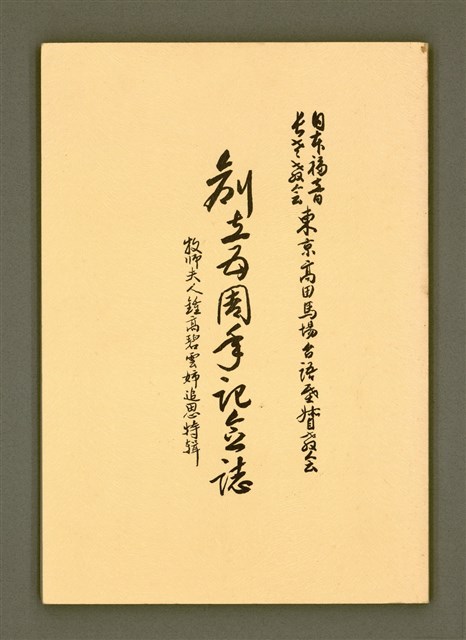 日本福音
長老教会
東京高田馬場台語基督教会
創立五周年記念誌
牧師夫人鍾高碧雲姉追思特輯